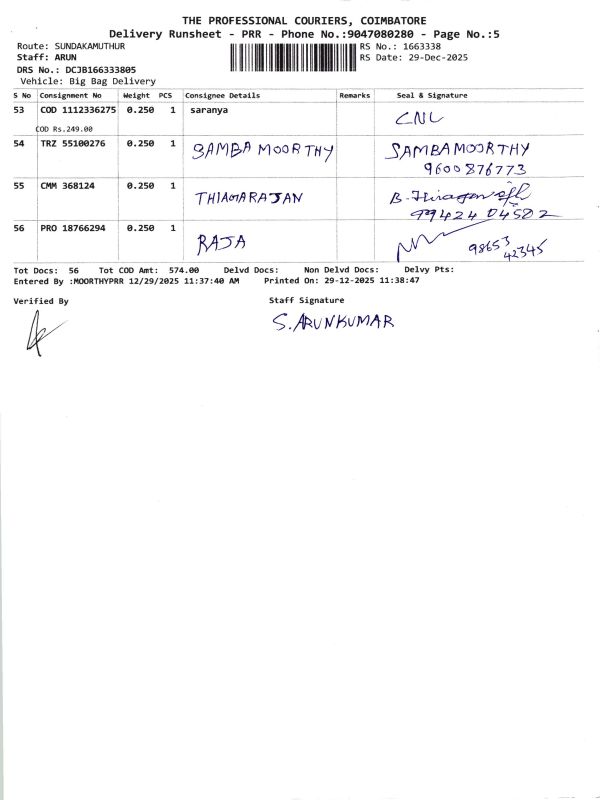 THE PROFESSIONAL COURIERS, COIMBATORE
Delivery Runsheet - PRR - Phone No.:9047080280 - Page No.:5
Route: SUNDAKAMUTHUR RS No.: 1663338
Staff: ARUN RS Date: 29-Dec-2025
DRS No.: DCJB166333805
Vehicle: Big Bag Delivery
S No Consignment No Weight PCS Consignee Details Remarks Seal & Signature
53 COD 1112336275 0.250 1 saranya CNL
COD Rs.249.00
54 TRZ 55100276 0.250 1 SAMBA MOORTHY SAMBAMOORTHY
9600876773
55 CMM 368124 0.250 1 THIAGARAJAN B.
99424 04582
56 PRO 18766294 0.250 1 RAJA 98653
42345
Tot Docs: 56 Tot COD Amt: 574.00 Delvd Docs: Non Delvd Docs: Delvy Pts:
Entered By :MOORTHYPRR 12/29/2025 11:37:40 AM Printed On: 29-12-2025 11:38:47
Verified By Staff Signature
S. ARUNKUMAR